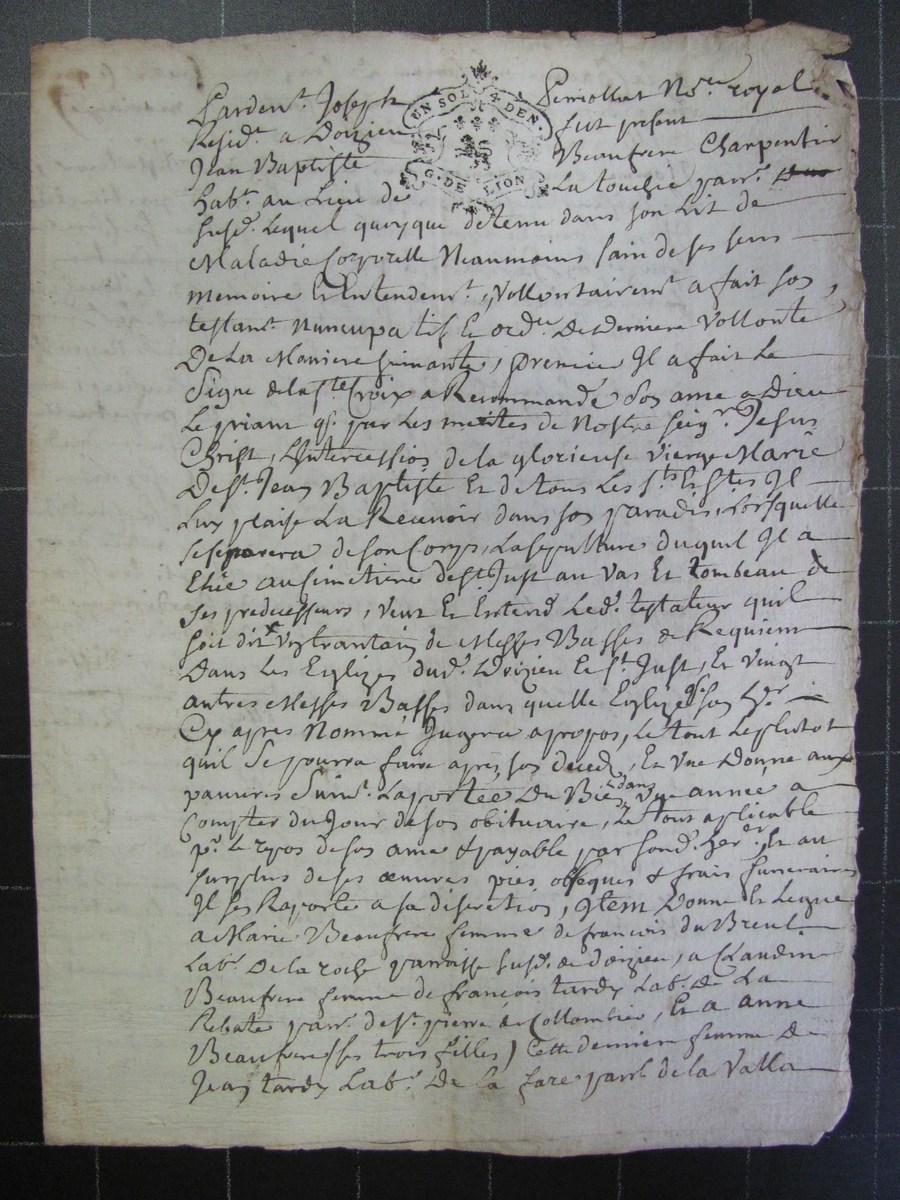 Pardent. Joseph Perriollat No.re royal
Resid.t a Doizieu fust present
Jean Baptiste Beaufrere Charpentier
UN SOL 4 DEN.
G. DE LION
hab.t au Lieu de La touchie parr.
Susd. Lequel quoyque détenu dans son Lit de
Maladie Corporelle Neaumoins Sain de ses sens
memoire Et Entendem.t, vollontairem.t a fait son
testam.t Nuncupatif Et ord.ce De derniere vollonté
De La Maniere suivante, premier Il a fait Le
Signe de la s.te Croix a Recommandé son ame a Dieu
Le priant q. par Les merites de Nostre Seig.r Jesus
Christ, L'Intercession de la glorieuse vierge Marie
De st. Jean Baptiste Et de tous Les s.ts Et s.tes Jl
Luy plaise La Recevoir dans son paradis, Lorsquelle
se separera de son Corps, La sepulture duquel Jl a
Elüe au simetiere de st Just au vas Et tombeau de
ses predecesseurs, veut Et Entend Led. testateur quil
soit dit un trantain de Messes Basses de Requiem
Dans Les Eglizes dud. Doizieu Et st. Just, Et vingt
autres Messes Basses dans quelle Eglize q. son h.r
Cy apres Nommé Jugera apropos, Le tout Le plutot
quil Se pourra faire apres son deced, Et une Donne aux
pauvres Suiv.t La portée Du Bien dans une année a
Compter du Jour de son obituaire, Le tout aplicable
p.r Le repos de son ame & payable par sond. her.r, Et au
surplus de ses œuvres pies obseques & frais funeraires
Jl s'en Raporte a sa discretion, Jtem Donne Et Legue
a Marie Beaufrere femme de francois du Breul
Lab.r De La roche parroisse susd. de doizieu, a Claudine
Beaufrere femme de francois tardy Lab.r De La
Rebate parr. de st. pierre de Collombier, Et a anne
Beaufrere (ses trois filles) Cette derniere femme de
Jean tardy Lab.r De la fare parr. de la Valla